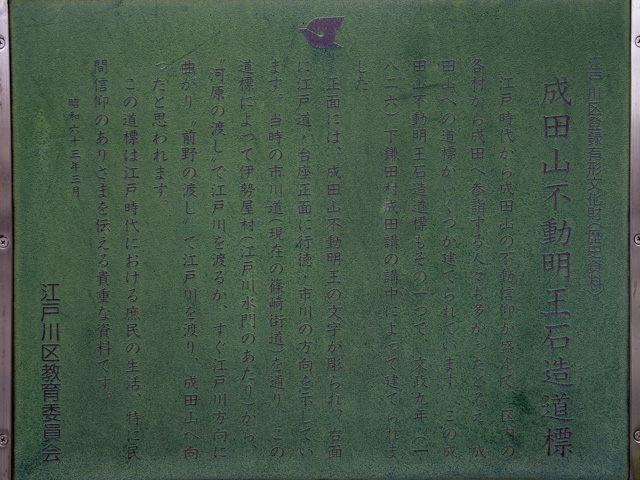 江戸川区登録有形文化財(歴史資料)
成田山不動明王石造道標
江戸時代から成田山の不動信仰が盛んで、区内の
各村から成田へ参詣する人々も多かったため、成
田山への道標がいくつか建てられています。この成
田山不動明王石造道標もその一つで、文政九年(一
八二六)下鎌田村成田講の講中によって建てられま
した。
正面には、成田山不動明王の文字が彫られ、右面
に江戸道、台座正面に行徳・市川の方向を示してい
ます。当時の市川道(現在の篠崎街道)を通り、この
道標によって伊勢屋村(江戸川水門のあたり)から、
"河原の渡し"で江戸川を渡るか、すぐ江戸川方向に
曲がり、"前野の渡し"で江戸川を渡り、成田山へ向
ったと思われます。
この道標は江戸時代における庶民の生活、特に民
間信仰のありさまを伝える貴重な資料です。
昭和六十三年三月
江戸川区教育委員会